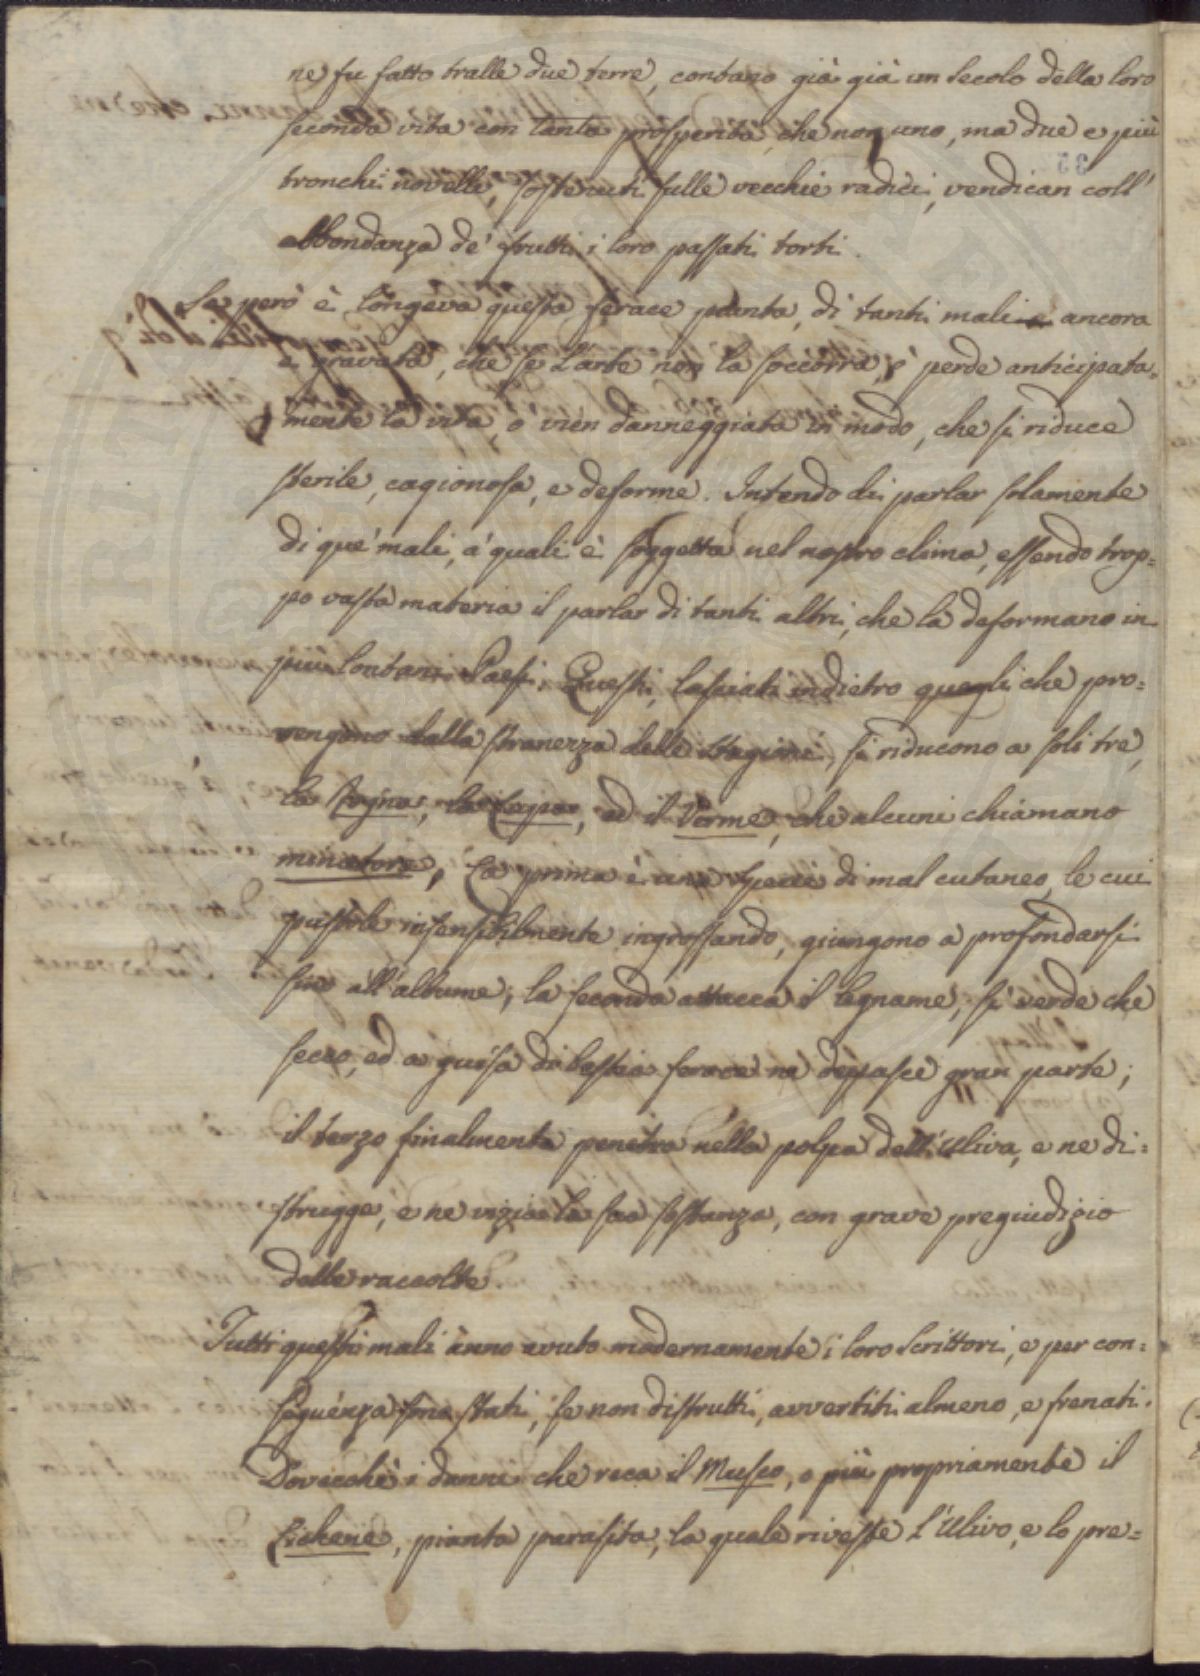 ne fu fatto tralle due terre, contano già già un secolo della loro
seconda vita con tanta prosperità, che non uno, ma due e più
tronchi novelli, sostenuti sulle vecchie radici, vendican coll'
abbondanza de' frutti i loro passati torti.
Se però è longeva questa ferace pianta, di tanti mali ancora
è gravata, che se l'arte non la soccorra, o perde anticipata=
mente la vita, o vien danneggiata in modo, che si riduce
sterile, cagionosa, e deforme. Intendo di parlar solamente
di que' mali, a' quali è soggetta nel nostro clima, essendo trop=
po vasta materia il parlar di tanti altri, che la deformano in
più lontani Paesi. Questi, lasciati indietro quegli che pro=
vengono dalla stranezza delle stagioni, si riducono a soli tre,
la Rogna, la Lupa, ed il Verme, che alcuni chiamano
minatore. La prima è una specie di mal cutaneo, le cui
pustole insensibilmente ingrossando, giungono a profondarsi
fin all'albume; la seconda attacca il legname, sì verde che
secco, ed a guisa di bestia ne depasce gran parte;
il terzo finalmente penetra nella polpa dell'Uliva, e ne di=
strugge, e ne vizia la sua sostanza, con grave pregiudizio
delle raccolte.
Tutti questi mali ànno avuto modernamente i loro Scrittori, e per con=
seguenza sono stati, se non distrutti, avvertiti almeno, e frenati.
Dovecchè i danni che reca il Musco, o più propriamente il
Lichene, pianta parasita, la quale riveste l'Ulivo, e lo pre=